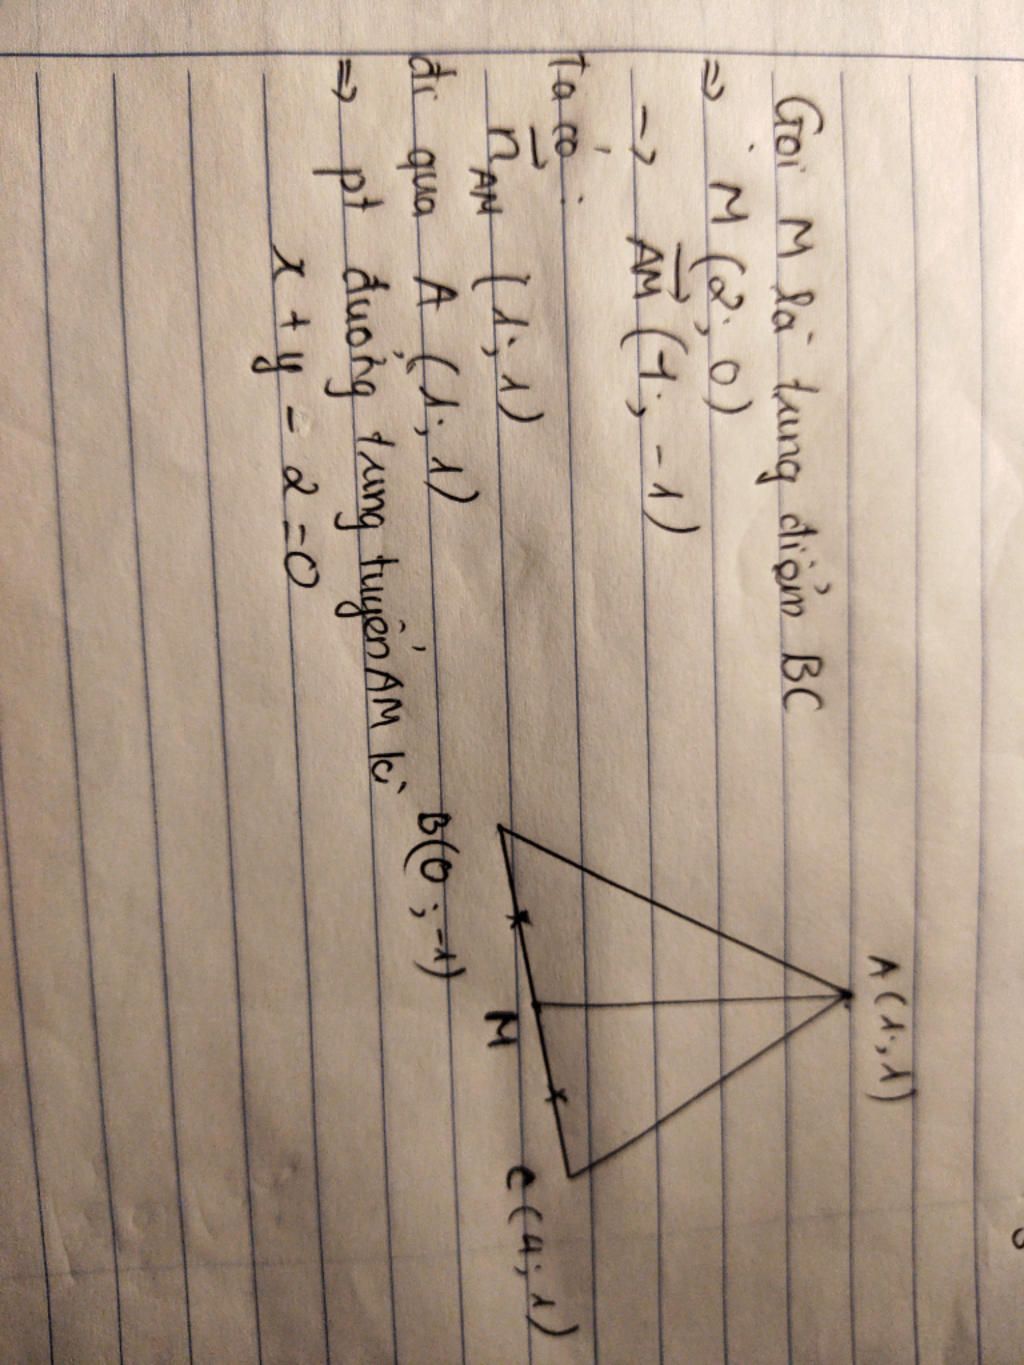 A(1;1)
Gọi M là trung điểm BC
⇒ M(2;0)
→ AM(1;-1)
Ta có:
n AM (1;1)
M
C(4;1)
đi qua A (1;1)
B(0;-1)
⇒ pt đường trung tuyến AM là
x + y - 2 = 0